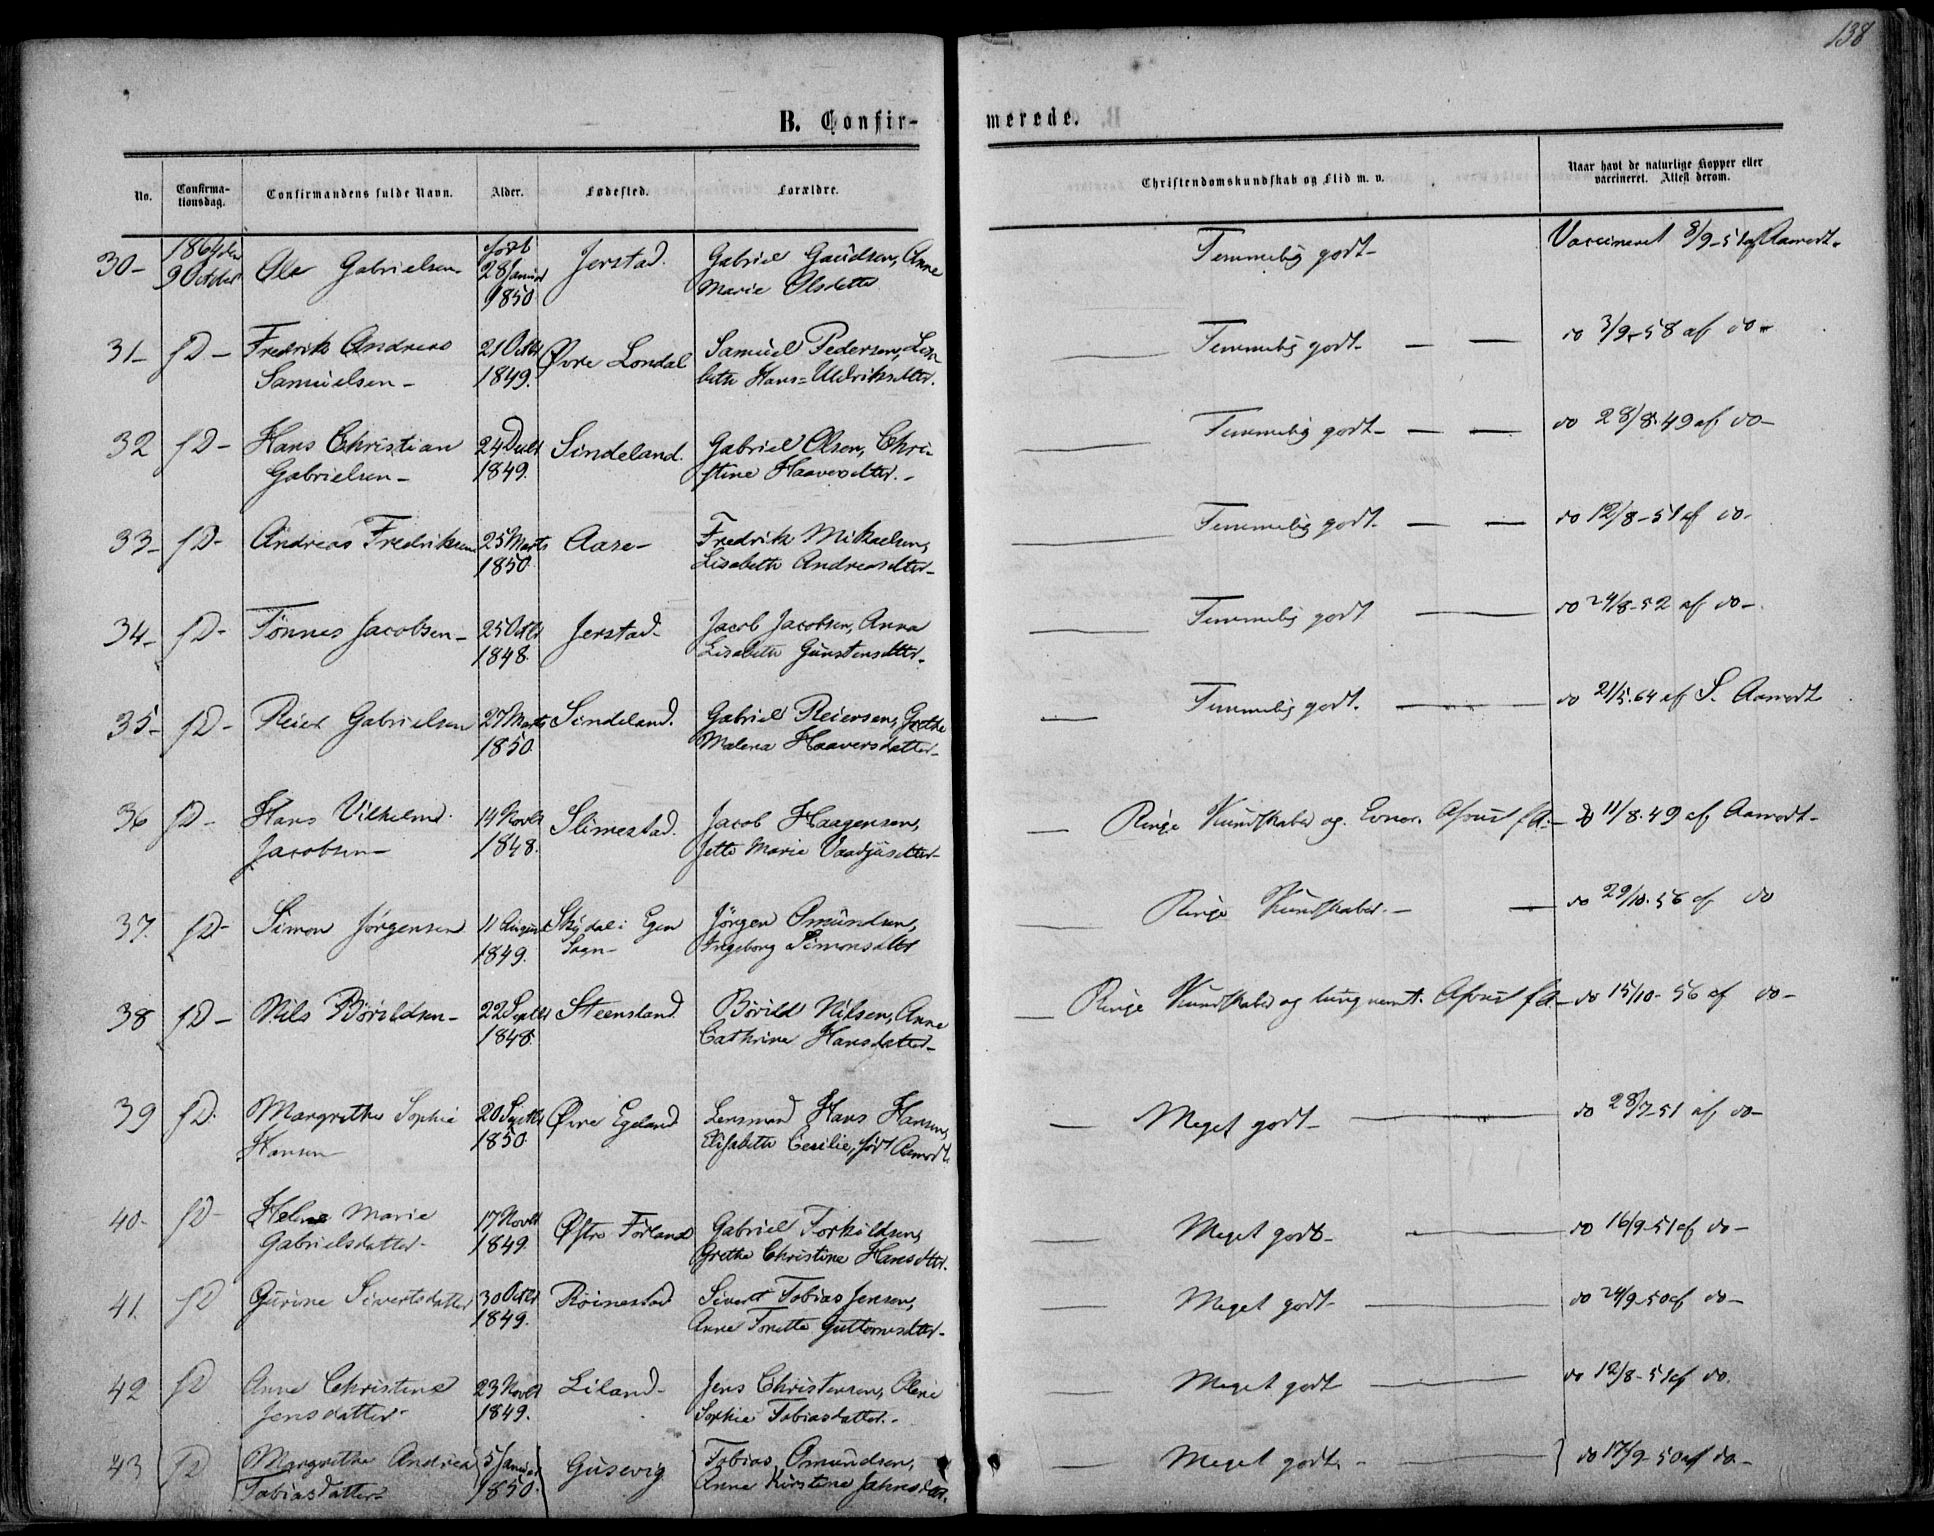 138
B. Confir- merede.
No. Confirma- tionsdag. Confirmandens fulde Navn. Alder. Fødested. Forældre. Christendomskundskab og Flid m. v. Naar havt de naturlige Kopper eller vaccineret. Attest derom.
30- 1864 den Ole Gabrielsen- født Jerstad. Gabriel Gaudsen, Anne Temmelig godt- Vaccineret 8/9-51 af Aamodt-
9 October 28 Januar Marie Olsdatter
1850
31- fD- Fredrik Andreas 21 Octbr Øvre Londal Samuel Pedersen, Lisa- Temmelig godt- do 3/9-58 af do-
Samuelsen- 1849. beth Hans=Uldriksdtter.
32 fD- Hans Christian 24 Decbr Sindeland. Gabriel Olsen, Chri- Temmelig godt- do 28/8.49 af do-
Gabrielsen- 1849. stine Haaversdtter.-
33- fD- Andreas Fredriksen 25 Marts Aase- Fredrik Mikaelsen, Temmelig godt- do 12/8-51 af do-
1850 Lisabeth Andreasdtter-
34- fD- Tønnes Jacobsen- 25 Octbr Jerstad- Jacob Jacobsen, Anna Temmelig godt do 24/8-52 af do-
1848. Lisabeth Gunstensdtter-
35- fD- Reier Gabrielsen 27 Marts Sindeland. Gabriel Reiersen, Grethe Temmelig godt. do 21/5.64 af S. Aamodt
1850 Malena Haaversdatter-
36 fD- Hans Vilhelm 14 Novbr Slimestad. Jacob Haagensen, Ringe Kundskaber og 11/8.49 af Aamodt-
Jacobsen- 1848. Jette Marie
37. fD- Simon Jørgensen 11 August i Egen Jørgen Omundsen, Ringe Kundskaber.- do 29/10.56 af do
1849. Sogn- Ingeborg Simonsdtter
38 fD- Nils Børildsen- 22 Septbr Steensland. Børild Nilsen, Anne Ringe Kundskaber og tung nemt. do 15/10-56 af do-
1848. Cathrine Hansdatter-
39 fD. Margrethe Sophie 20 Septbr Øvre Egeland Lensmand Hans Hansen, Meget godt- do 28/7 51 af do-
Hansen- 1850 Elisabeth Cecilie, født Aamodt.
40- fD- Helene Marie 17 Novbr Østre Førland Gabriel Torkildsen, Meget godt- do 16/9-51 af do-
Gabrielsdatter- 1849. Grethe Christine Hansdtter.
41. fD Gurine Sivertsdatter 30 Octbr Røinestad Sivert Tobias Jensen, Meget godt- do 24/9-50 af do-
1849. Anne Tonette Guttormsdtter-
42 fD Anne Christine 23 Novbr Liland- Jens Christensen, Olene Meget godt do 12/8-51 af do.
Jensdatter- 1849. Sophie Tobiasdatter.-
43 fD Margrethe Andrea 5 Januar Gusevig Tobias Omundsen, Meget godt.- do 17/9-50 af do-
Tobiasdatter- 1850. Anne Kirstene